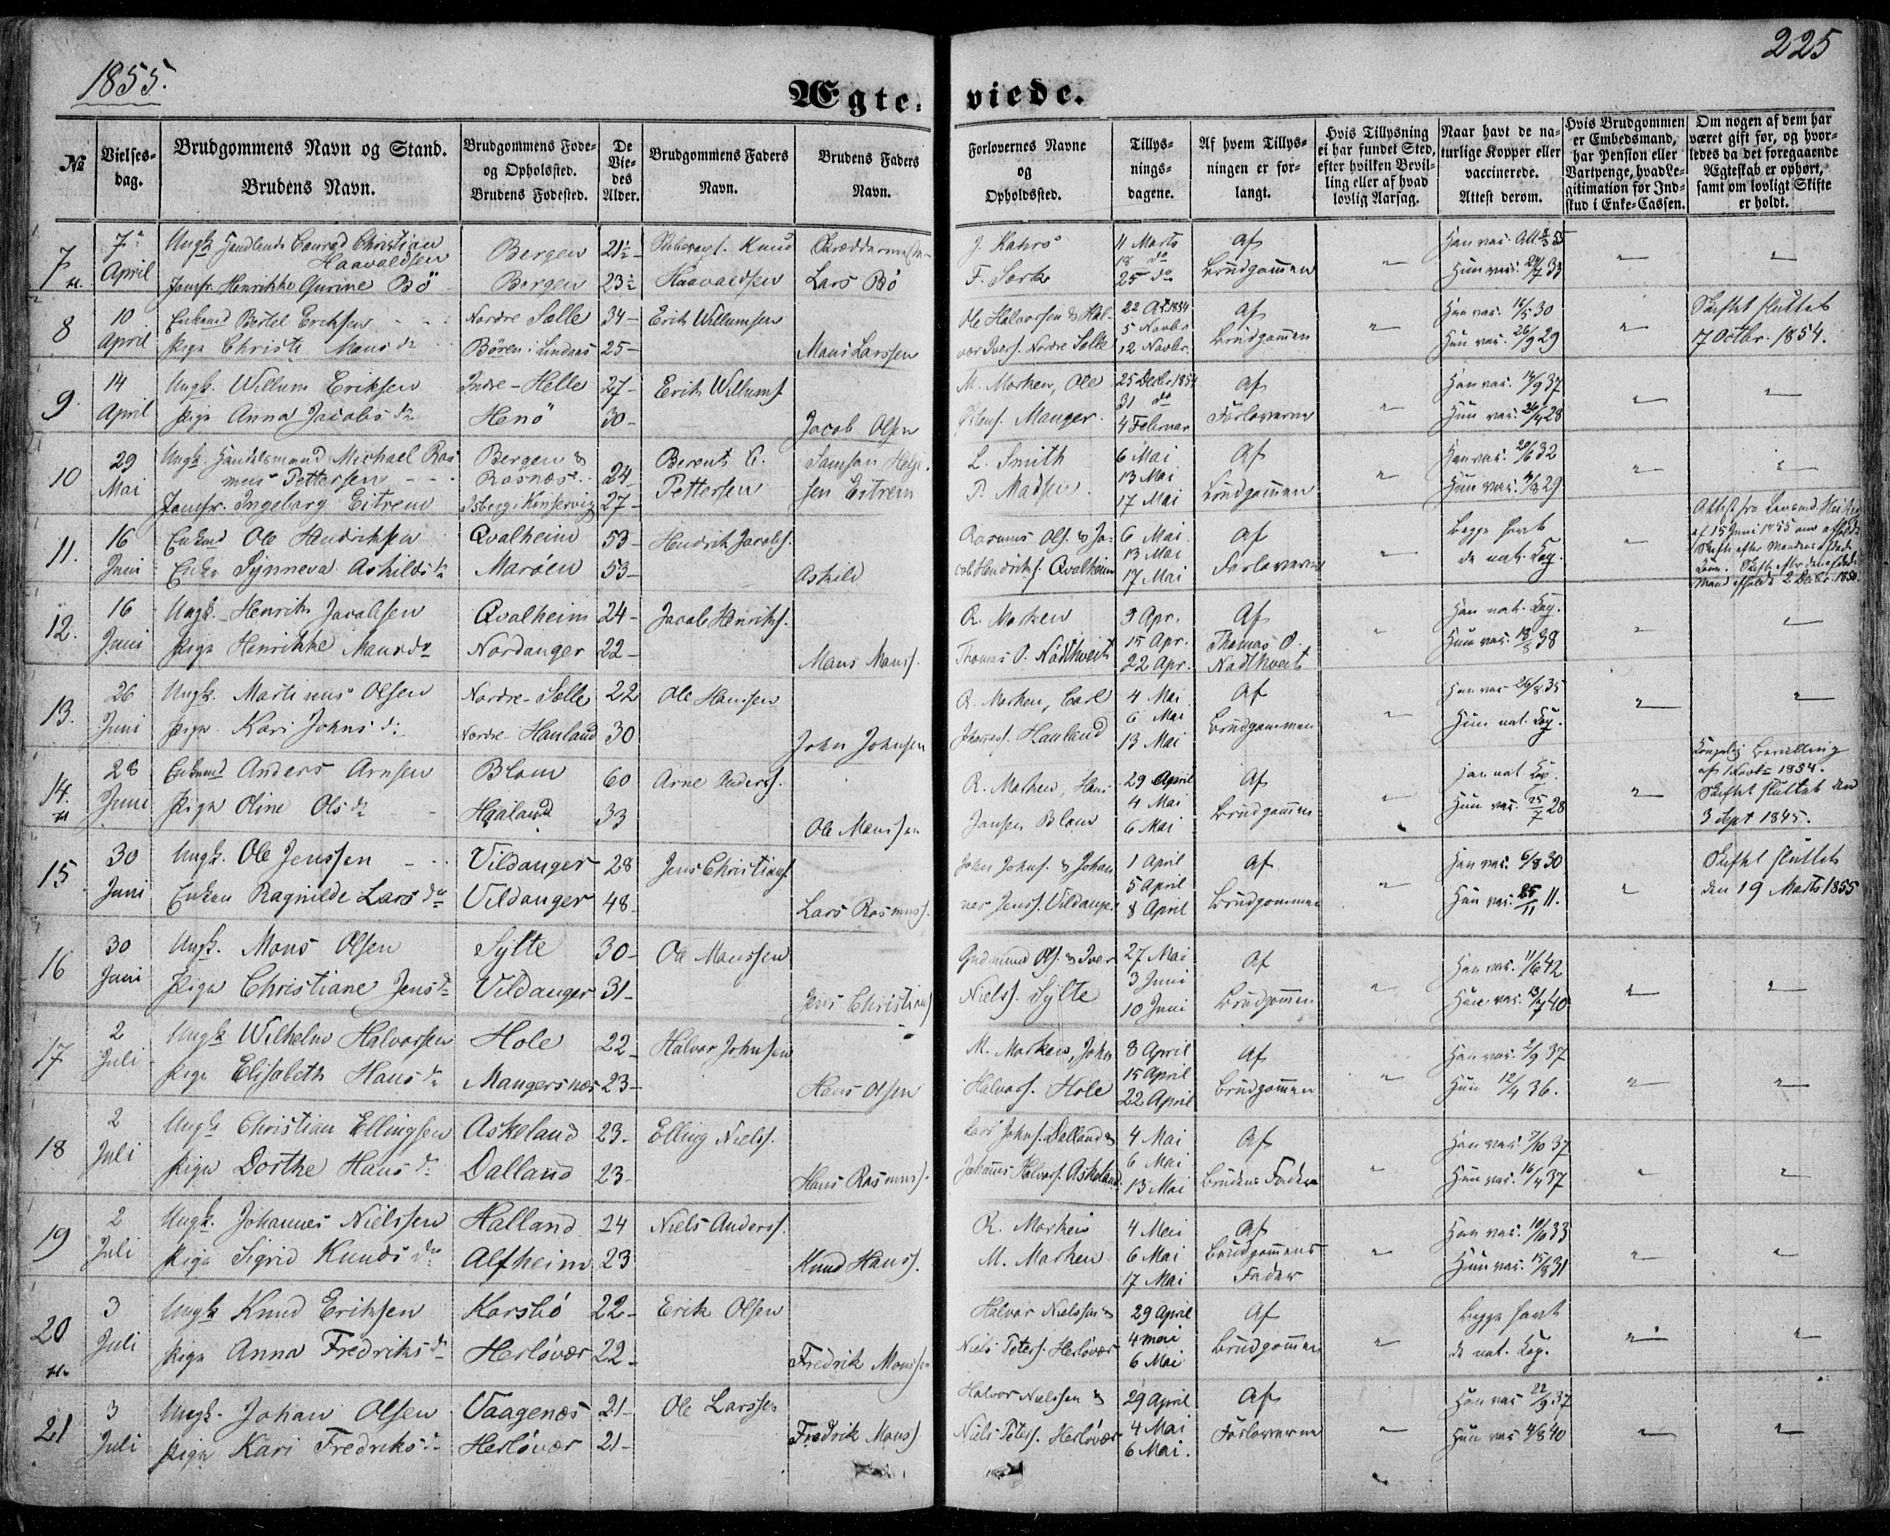 1855.
225
Ægteviede.
№
Vielsesdag.
Brudgommens Navn og Stand.
Brudens Navn.
Brudgommens Føde- og Opholssted.
Brudens Fødested.
De Viedes Alder.
Brudgommens Faders Navn.
Brudens Faders Navn.
Forlovernes Navne og Opholdssted.
Tillysningsdagene.
Af hvem Tillysningen er forlangt.
Hvis Tillysning ei har fundet Sted, efter hvilken Bevilling eller af hvad lovlig Aarsag.
Naar havt de naturlige Kopper eller vaccinerede.
Attest derom.
Hvis Brudgommen er Embedsmand, har Pension eller Vartpenge, hvad Legitimation for Indskud i Enke-Cassen.
Om nogen af dem har været gift før, og hvorledes da det foregaaende Ægteskab er ophørt, samt om lovligt Skifte er holdt.
7 7de April Ungk. Handlende Conrad Christian Haavaldsen Bergen 21½ Knud Haavaldsen J. Rahrs 11 Marts 18 do 25 do Af Brudgommen
Jomfr. Henrikke Gurine Bö Bergen 23½ Skræddermester Lars Bö F. Hun vac. 24/7 33
8 10 April Enkemd Bertel Eriksen Nordre Sælle 34 Erik Willumsen Ole Halvorsen & Halvor Ivers. Nordre Sælle 22 Oct 1854 5 Novbr 12 Novbr. Af Brudgommen Han vac. 16/5 30 Skiftet sluttet 17 Octbr. 1854.
Pige Christi Mons dr Bören i Lindaas 25 Mons Larssen Hun vac. 26/9 29
9 14 April Ungk. Willum Eriksen Indre-Helle 27 Erik Willums. M. Marken, Ole Manger. 25 Decbr 1854 31 do 4 Februar Af Forloverne Han vac. 14/9 37
Pige Anna Jacobs dr Henö 30 Jacob Olsen Hun vac. 26/4 28
10 29 Mai Ungk. Handelsmand Michael Rasmus Pettersen Bergen & Rosnæs 24 Berent C. Pettersen L. Smith P. Madsen 6 Mai 13 Mai 17 Mai Af Brudgommen Han vac. 29/6 32
Jomfr. Ingeborg Eitrem Kinservig 27 Samson Helgesen Eitrem Hun vac. 4/8 29
11. 16 Juni Enkemd Ole Hendriksen Qvalheim 53 Hendrik Jacobs. Rasmus Ols. & Jacob Hendriks. Qvalheim 6 Mai 13 Mai 17 Mai Af Forloverne Begge havt de nat. Kop.
Enke Synneva Askilds dr Marøen 53 Askild
12. 16 Juni Ungk. Henrik Jacobsen Qvalheim 24 Jacob Henriks. R. Marken Thomas O. Nödtveit 9 Apr. 15 Apr. 22 Apr. Af Thomas O. Nødtveit Han nat. Kop.
Pige Henrikke Mons dr Nordanger 22 Mons Mons. Hun vac. 18/8 38
13. 26 Juni Ungk. Martinus Olsen Nordre-Sælle 22 Ole Hansen R. Marken, Carl Johannes. Hauland 4 Mai 6 Mai 13 Mai Af Brudgommen Han vac 26/8 35
Pige Kari Johns dr Nordre Hauland 30 John Johnsen Hun nat. Kop.
14. 28 Juni Enkemd Anders Arnsen Blom 60 Arne Anders. R. Marken, Hans Jansen Blom 29 April 4 Mai 6 Mai Af Brudgommen Han nat Kop. Kongelig Bevilling af Novbr 1854. Skiftet sluttet den 3 Sept 1845.
Pige Oline Ols dr Haaland 33 Ole Monssen Hun vac. 25/7 28
15 30 Juni Ungk. Ole Jenssen Vildanger 28 Jens Christians. John Johns. & Johannes Jens. Vildanger 1 April 5 April 8 April Af Brudgommen Han vac. 6/8 30 Skiftet sluttet den 19 Marts 1855
Enken Ragnilde Lars dr Vildanger 48 Lars Rasmus. Hun vac. 25/11 11.
16 30 Juni Ungk. Mons Olsen Sylte 30 Ole Monssen Gudmund Ols. & Iver Niels. Sylte 27 Mai 3 Juni 10 Juni Af Brudgommen Han vac. 11/6 42
Pige Christiane Jens dr Vildanger 31 Jens Christians. Hun vac. 13/7 40
17 2 Juli Ungk Wilhelm Halvorsen Hole 22 Halvor Johnsen M. Marken, John Halvors. Hole 8 April 15 April 22 April Af Brudgommen Han vac. 2/9 37
Pige Elisabeth Hans dr Mangersnæs 23 Hans Olsen Hun 12/4 36.
18 2 Juli Ungk Christian Ellingsen Askeland 23 Elling Niels. Lars Johns. Dalland & Johannes Halvors. Askeland 4 Mai 6 Mai 13 Mai Af Brudens Fader Han vac. 7/10 37
Pige Dorthe Hans dr Dalland 23 Hans Rasmus. Hun vac. 16/4 37
19 2 Juli Ungk. Johannes Nielssen Halland 24 Niels Anders. R. Marken M. Marken 4 Mai 6 Mai 17 Mai Af Brudgommens Fader Han vac. 10/10 33
Pige Sigrid Knuds dr Alfheim 23 Knud Hans. Hun vac. 15/8 31
20 3 Juli Ungk Knud Eriksen Korsbö 22 Erik Olsen Halvor Nielssen & Niels Peters. Herløvær 29 April 4 Mai 6 Mai Af Brudgommen Begge havt de nat. Kop.
Pige Anna Fredriks dr Herløvær 22 Fredrik Monssen
21 3 Juli Ungk. Johan Olsen Vaagenæs 21 Ole Larssen Halvor Nielssen & Niels Peters. Herløvær 29 April 4 Mai 6 Mai. Af Forloverne Han vac 22/9 37
Pige Kari Fredriks dr Herløvær 21 Fredrik Mons. Hun vac 4/8 40